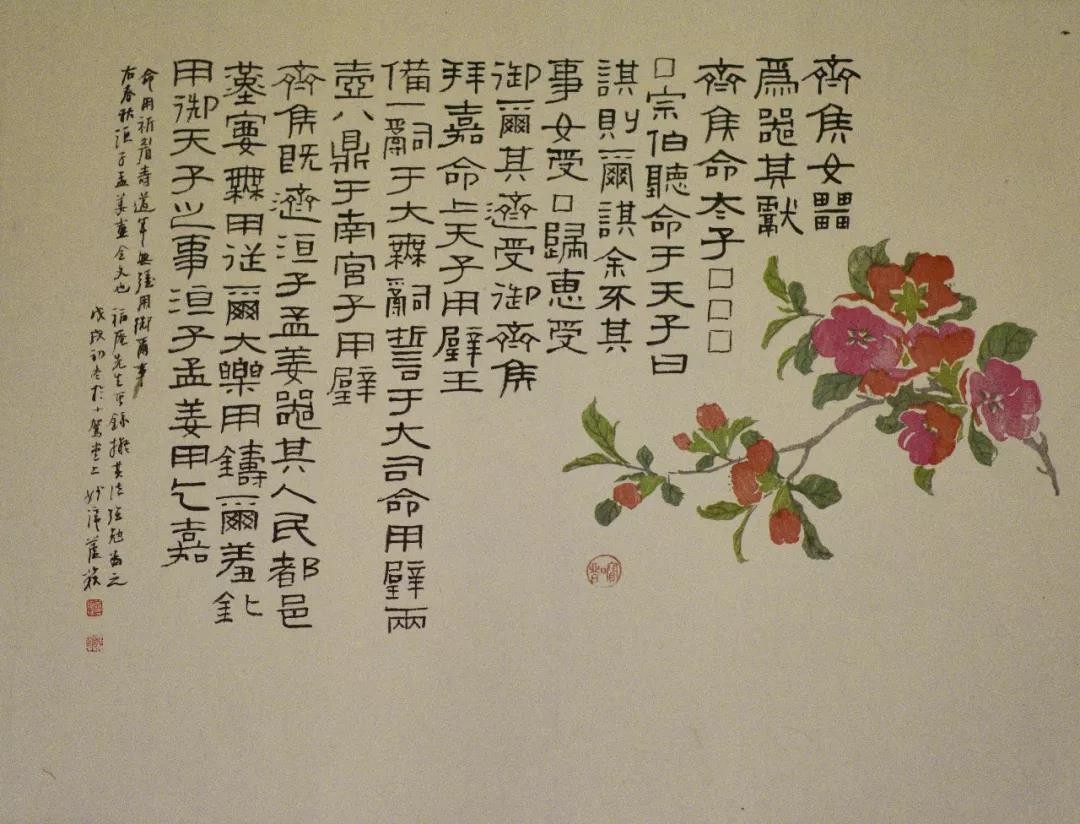 齊侯女畾
爲器其獻
齊侯命太子□□□
□宗伯聽命于天子曰
諆則爾諆余不其
事女受□歸惠受
御爾其濟受御齊侯
拜嘉命上天子用璧玉
備一嗣于大無嗣誓于大司命用璧兩
壺八鼎于南宮子用璧
齊侯既濟洹子孟姜器其人民都邑
堇寠無用從爾大樂用鑄爾羞鈚
用御天子之事洹子孟姜用乞嘉
命用祈眉壽萬年無疆用御爾事
右春秋洹子孟姜壺全文也
戊戌初冬於